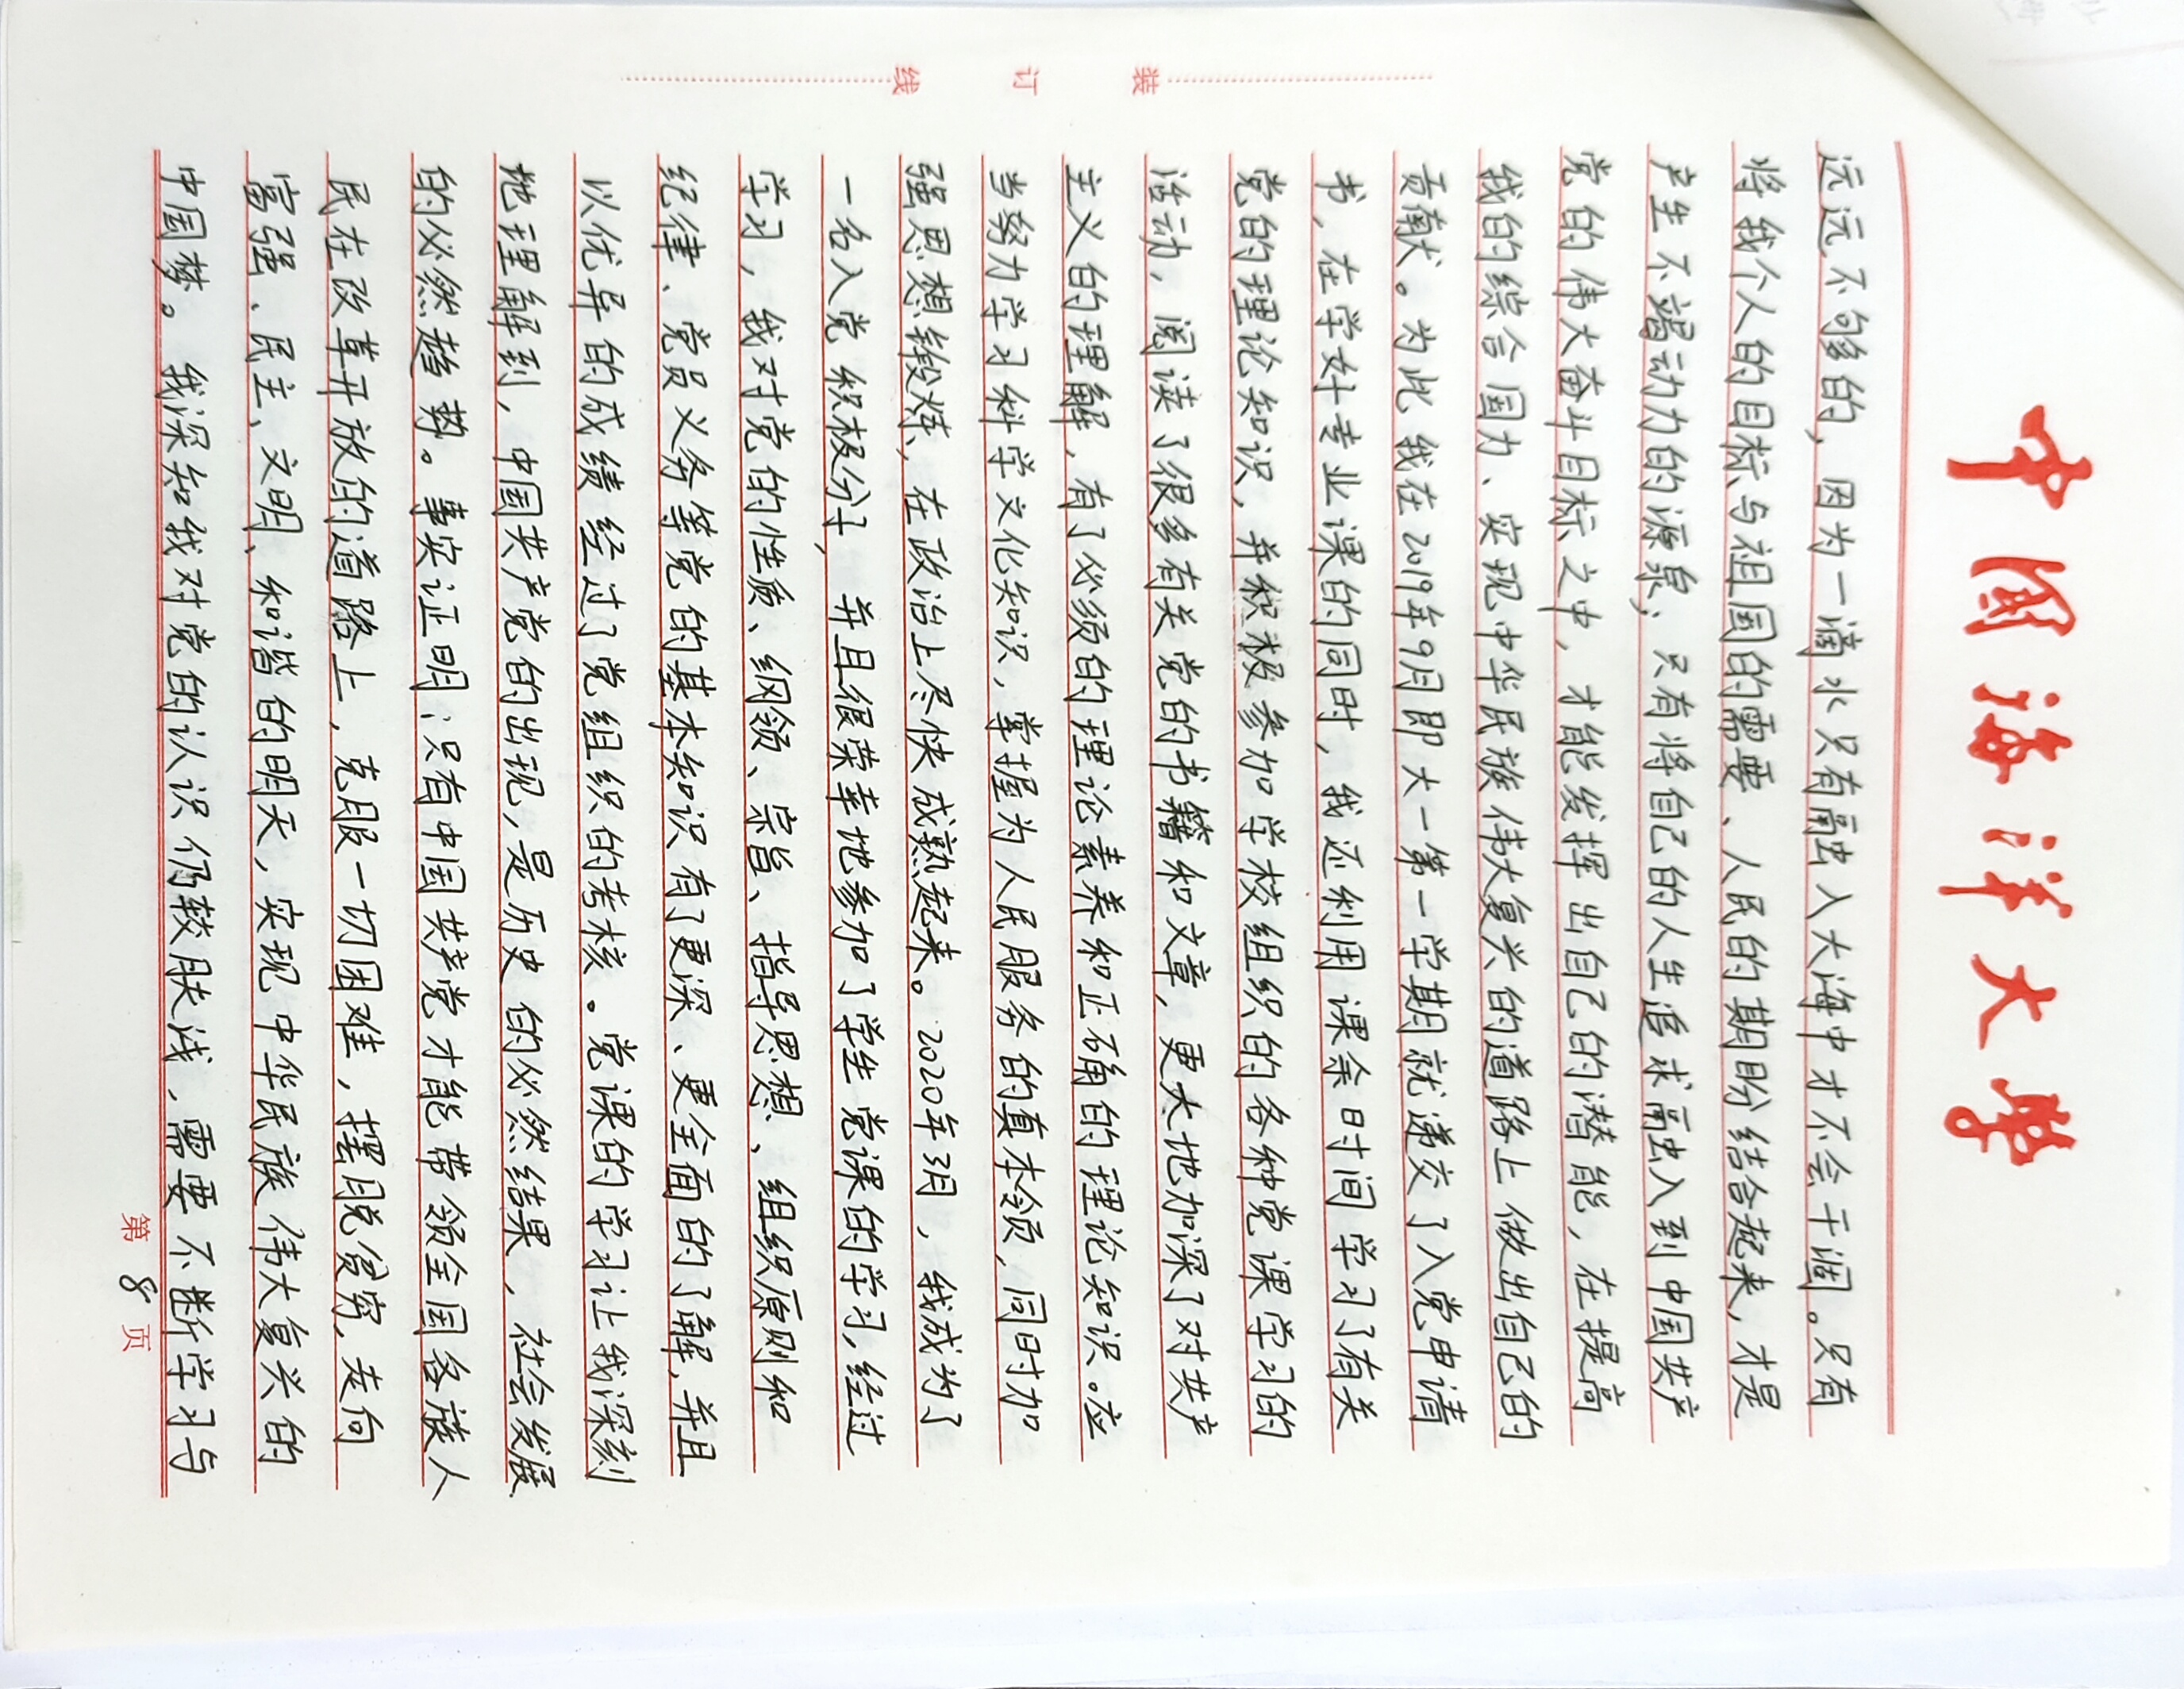 中国海洋大学
远远不够的，因为一滴水只有融入大海中才不会干涸。只有
将我个人的目标与祖国的需要、人民的期盼结合起来，才是
产生不竭动力的源泉；只有将自己的人生追求融入到中国共产
党的伟大奋斗目标之中，才能发挥出自己的潜能，在提高
我的综合国力、实现中华民族伟大复兴的道路上做出自己的
贡献。为此我在2019年9月即大一第一学期就递交了入党申请
书，在学好专业课的同时，我还利用课余时间学习了有关
党的理论知识，并积极参加学校组织的各种党课学习的
活动，阅读了很多有关党的书籍和文章，更大地加深了对共产
主义的理解，有了必须的理论素养和正确的理论知识。应
当努力学习科学文化知识，掌握为人民服务的真本领，同时加
强思想锻炼，在政治上尽快成熟起来。2020年3月，我成为了
一名入党积极分子，并且很荣幸地参加了学生党课的学习，经过
学习，我对党的性质、纲领、宗旨、指导思想、组织原则和
纪律、党员义务等党的基本知识有了更深、更全面的了解，并且
以优异的成绩经过了党组织的考核。党课的学习让我深刻
地理解到，中国共产党的出现，是历史的必然结果，社会发展
的必然趋势。事实证明：只有中国共产党才能带领全国各族人
民在改革开放的道路上，克服一切困难，摆脱贫穷，走向
富强、民主、文明、和谐的明天，实现中华民族伟大复兴的
中国梦。我深知我对党的认识仍较肤浅，需要不断学习与
第8页
装
订
线